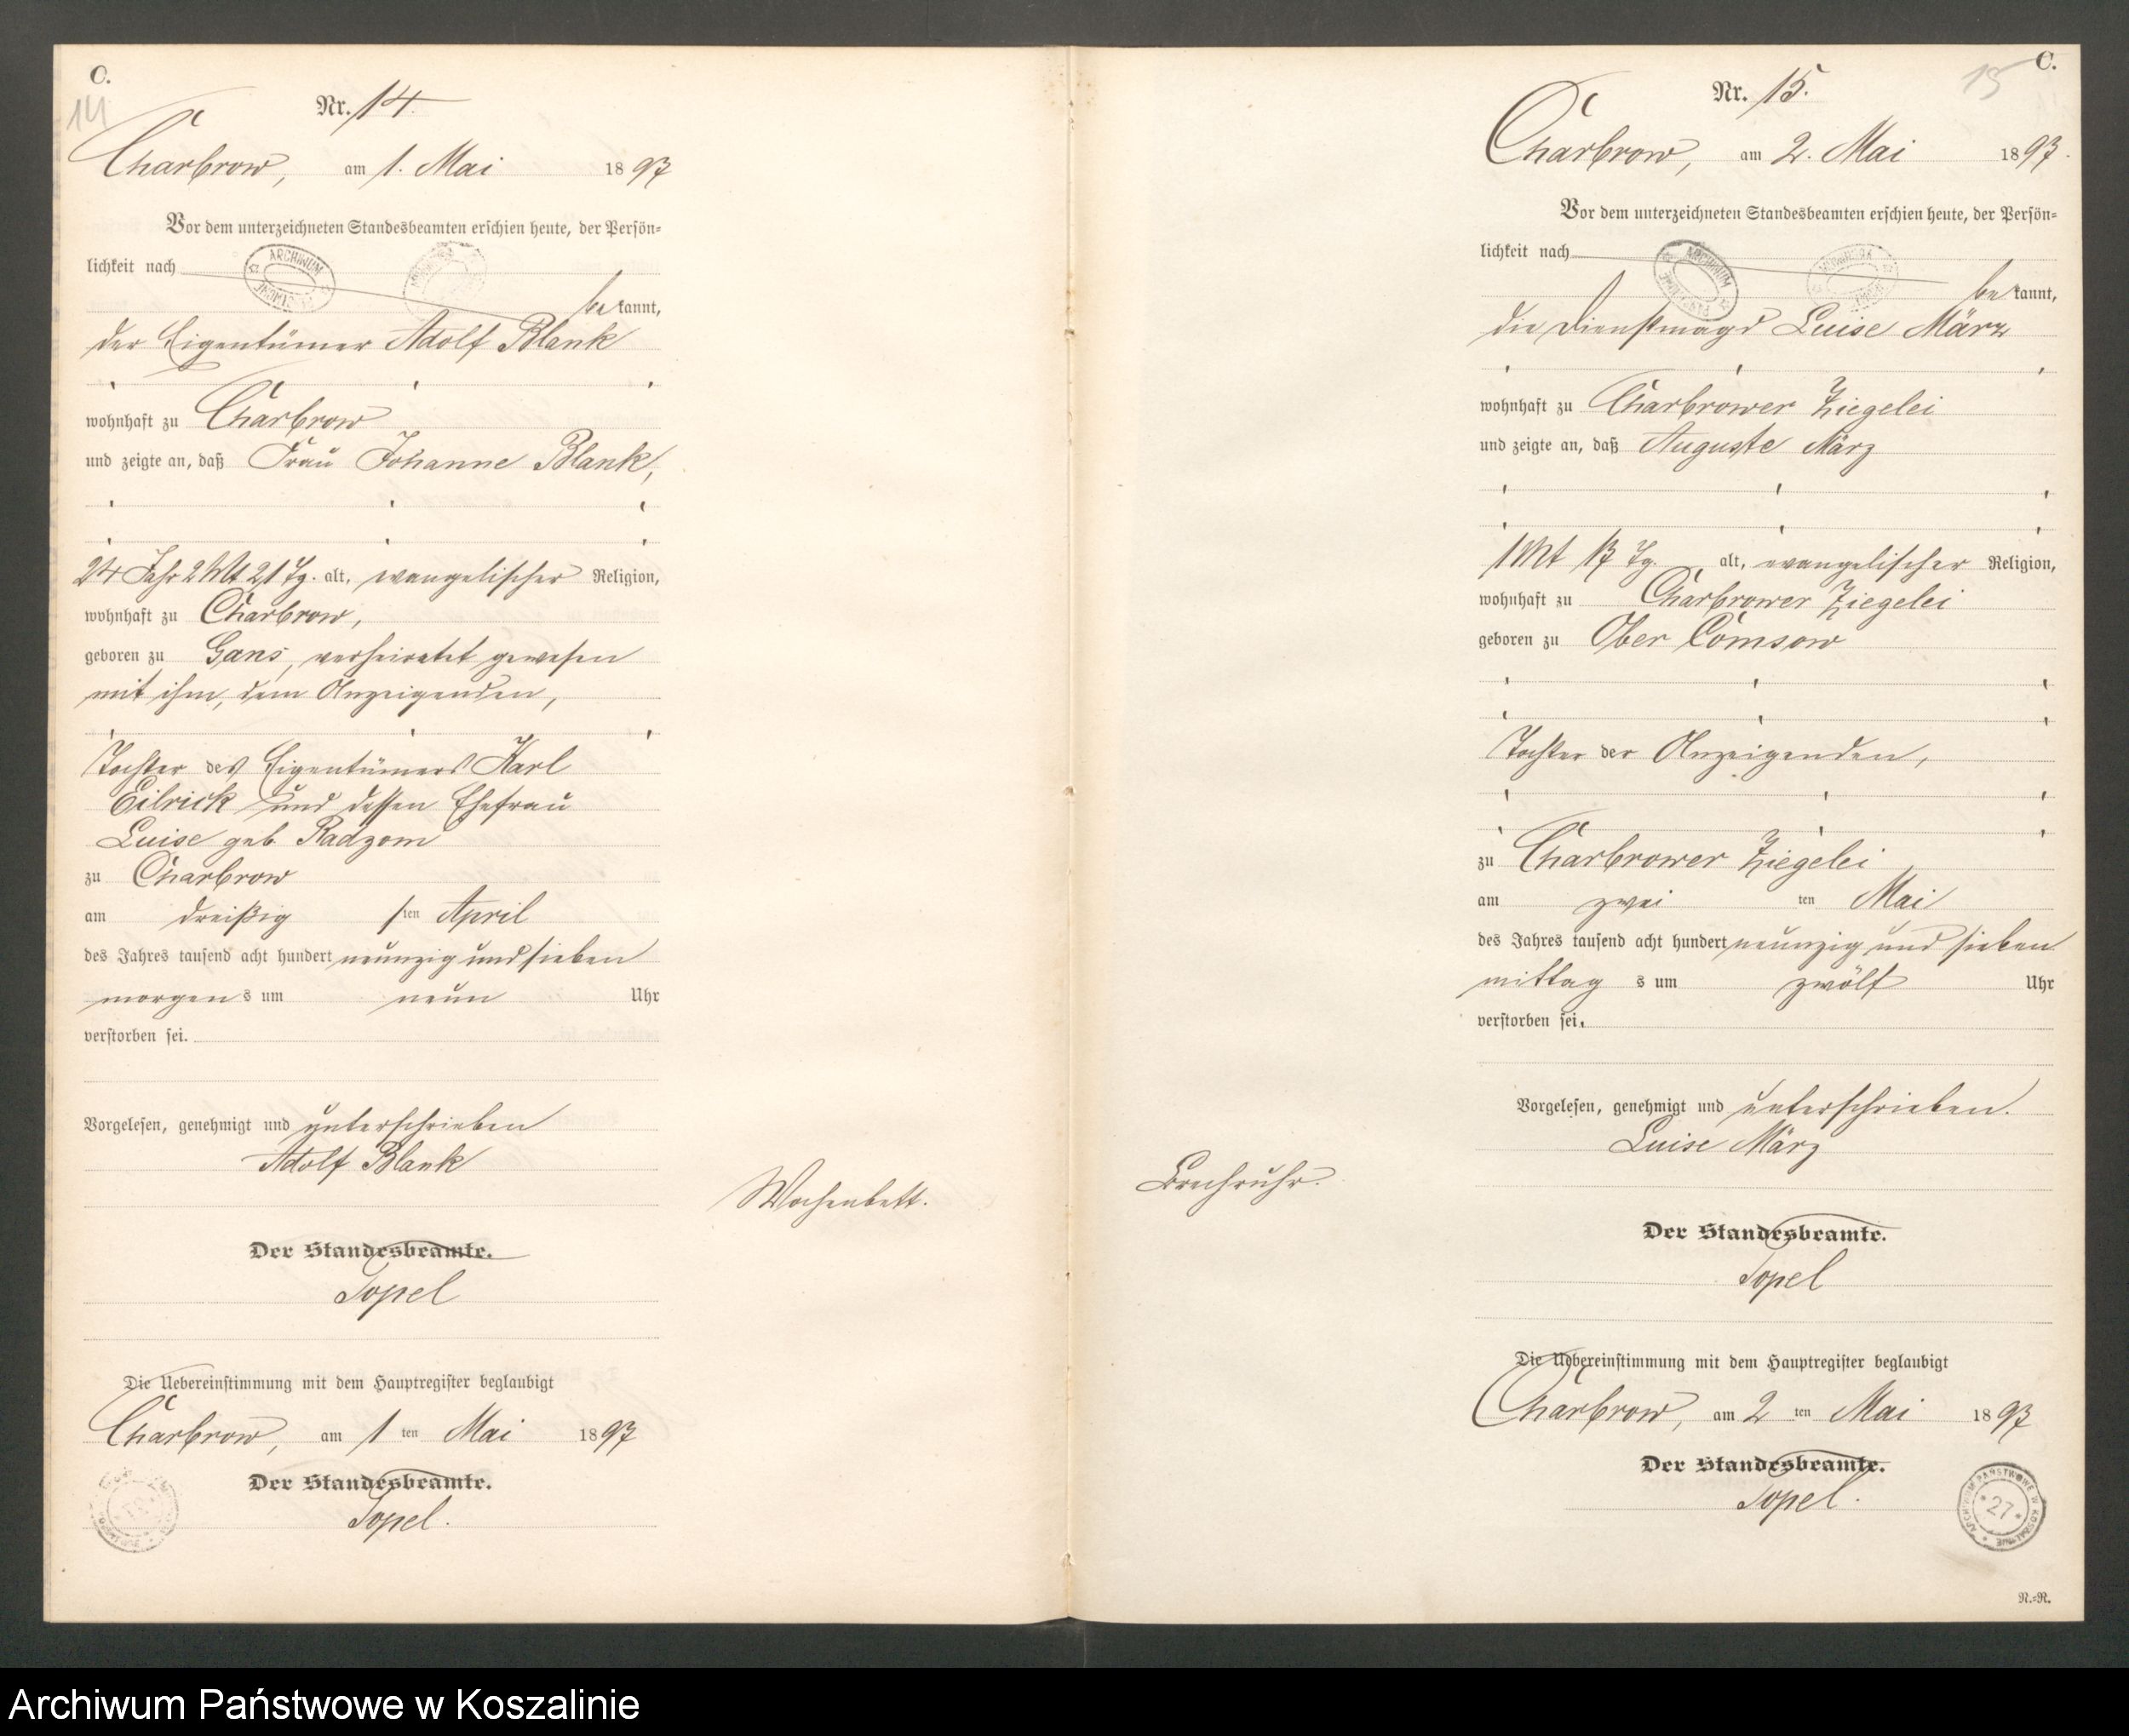 C.
14
Nr. 14.
Charbrow, am 1. Mai 1897
Vor dem unterzeichneten Standesbeamten erschien heute, der Persön-
lichkeit nach
ARCHIWUM
be kannt,
der Eigentümer Adolf Blank
wohnhaft zu Charbrow
und zeigte an, daß Frau Johanne Blank,
24 Jahr 2 Mt 21 Tg. alt, evangelischer Religion,
wohnhaft zu Charbrow,
geboren zu Gans, verheiratet gewesen
mit ihm, dem Anzeigenden,
Tochter des Eigentümers Karl
Eilrick und dessen Ehefrau
Luise geb. Radzom
zu Charbrow
am dreißig sten April
des Jahres tausend acht hundert neunzig und sieben
morgen s um neun Uhr
verstorben sei.
Vorgelesen, genehmigt und unterschrieben
Adolf Blank
Wochenbett.
Der Standesbeamte.
Topel
Die Uebereinstimmung mit dem Hauptregister beglaubigt
Charbrow, am 1 ten Mai 1897
Der Standesbeamte.
Topel.
C.
15
Nr. 15.
Charbrow, am 2. Mai 1897.
Vor dem unterzeichneten Standesbeamten erschien heute, der Persön-
lichkeit nach
ARCHIWUM
be kannt,
die Dienstmagd Luise März
wohnhaft zu Charbrower Ziegelei
und zeigte an, daß Auguste März
1 Mt 17 Tg. alt, evangelischer Religion,
wohnhaft zu Charbrower Ziegelei
geboren zu Ober Comsow
Tochter der Anzeigenden,
zu Charbrower Ziegelei
am zwei ten Mai
des Jahres tausend acht hundert neunzig und sieben
mittag s um zwölf Uhr
verstorben sei.
Vorgelesen, genehmigt und unterschrieben.
Luise März
Brechruhr.
Der Standesbeamte.
Topel
Die Uebereinstimmung mit dem Hauptregister beglaubigt
Charbrow, am 2 ten Mai 1897
Der Standesbeamte.
Topel.
ARCHIWUM PAŃSTWOWE W KOSZALINIE
* 27 *
N.=N.
Archiwum Państwowe w Koszalinie